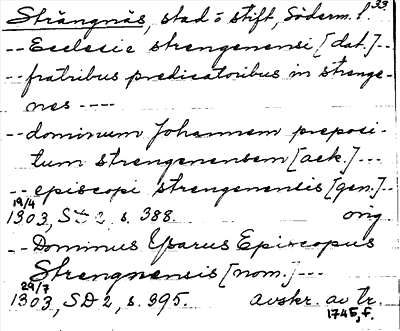 Strängnäs, stad o stift, Söderm. l. 33
-- Ecclesie strengenensi [dat.] --
-- fratribus predicatoribus in strenge-
nes ----
-- dominum Johannem preposi-
tum strengenensem [ack.] ---
-- episcopi strengenensis [gen.] --
19/4
1303, SD 2, s. 388. orig.
-- Dominus Ysarus Episcopus
Strengnensis [nom.] ---
29/7
1303, SD 2, s. 395. avskr. av tr.
1745, f.